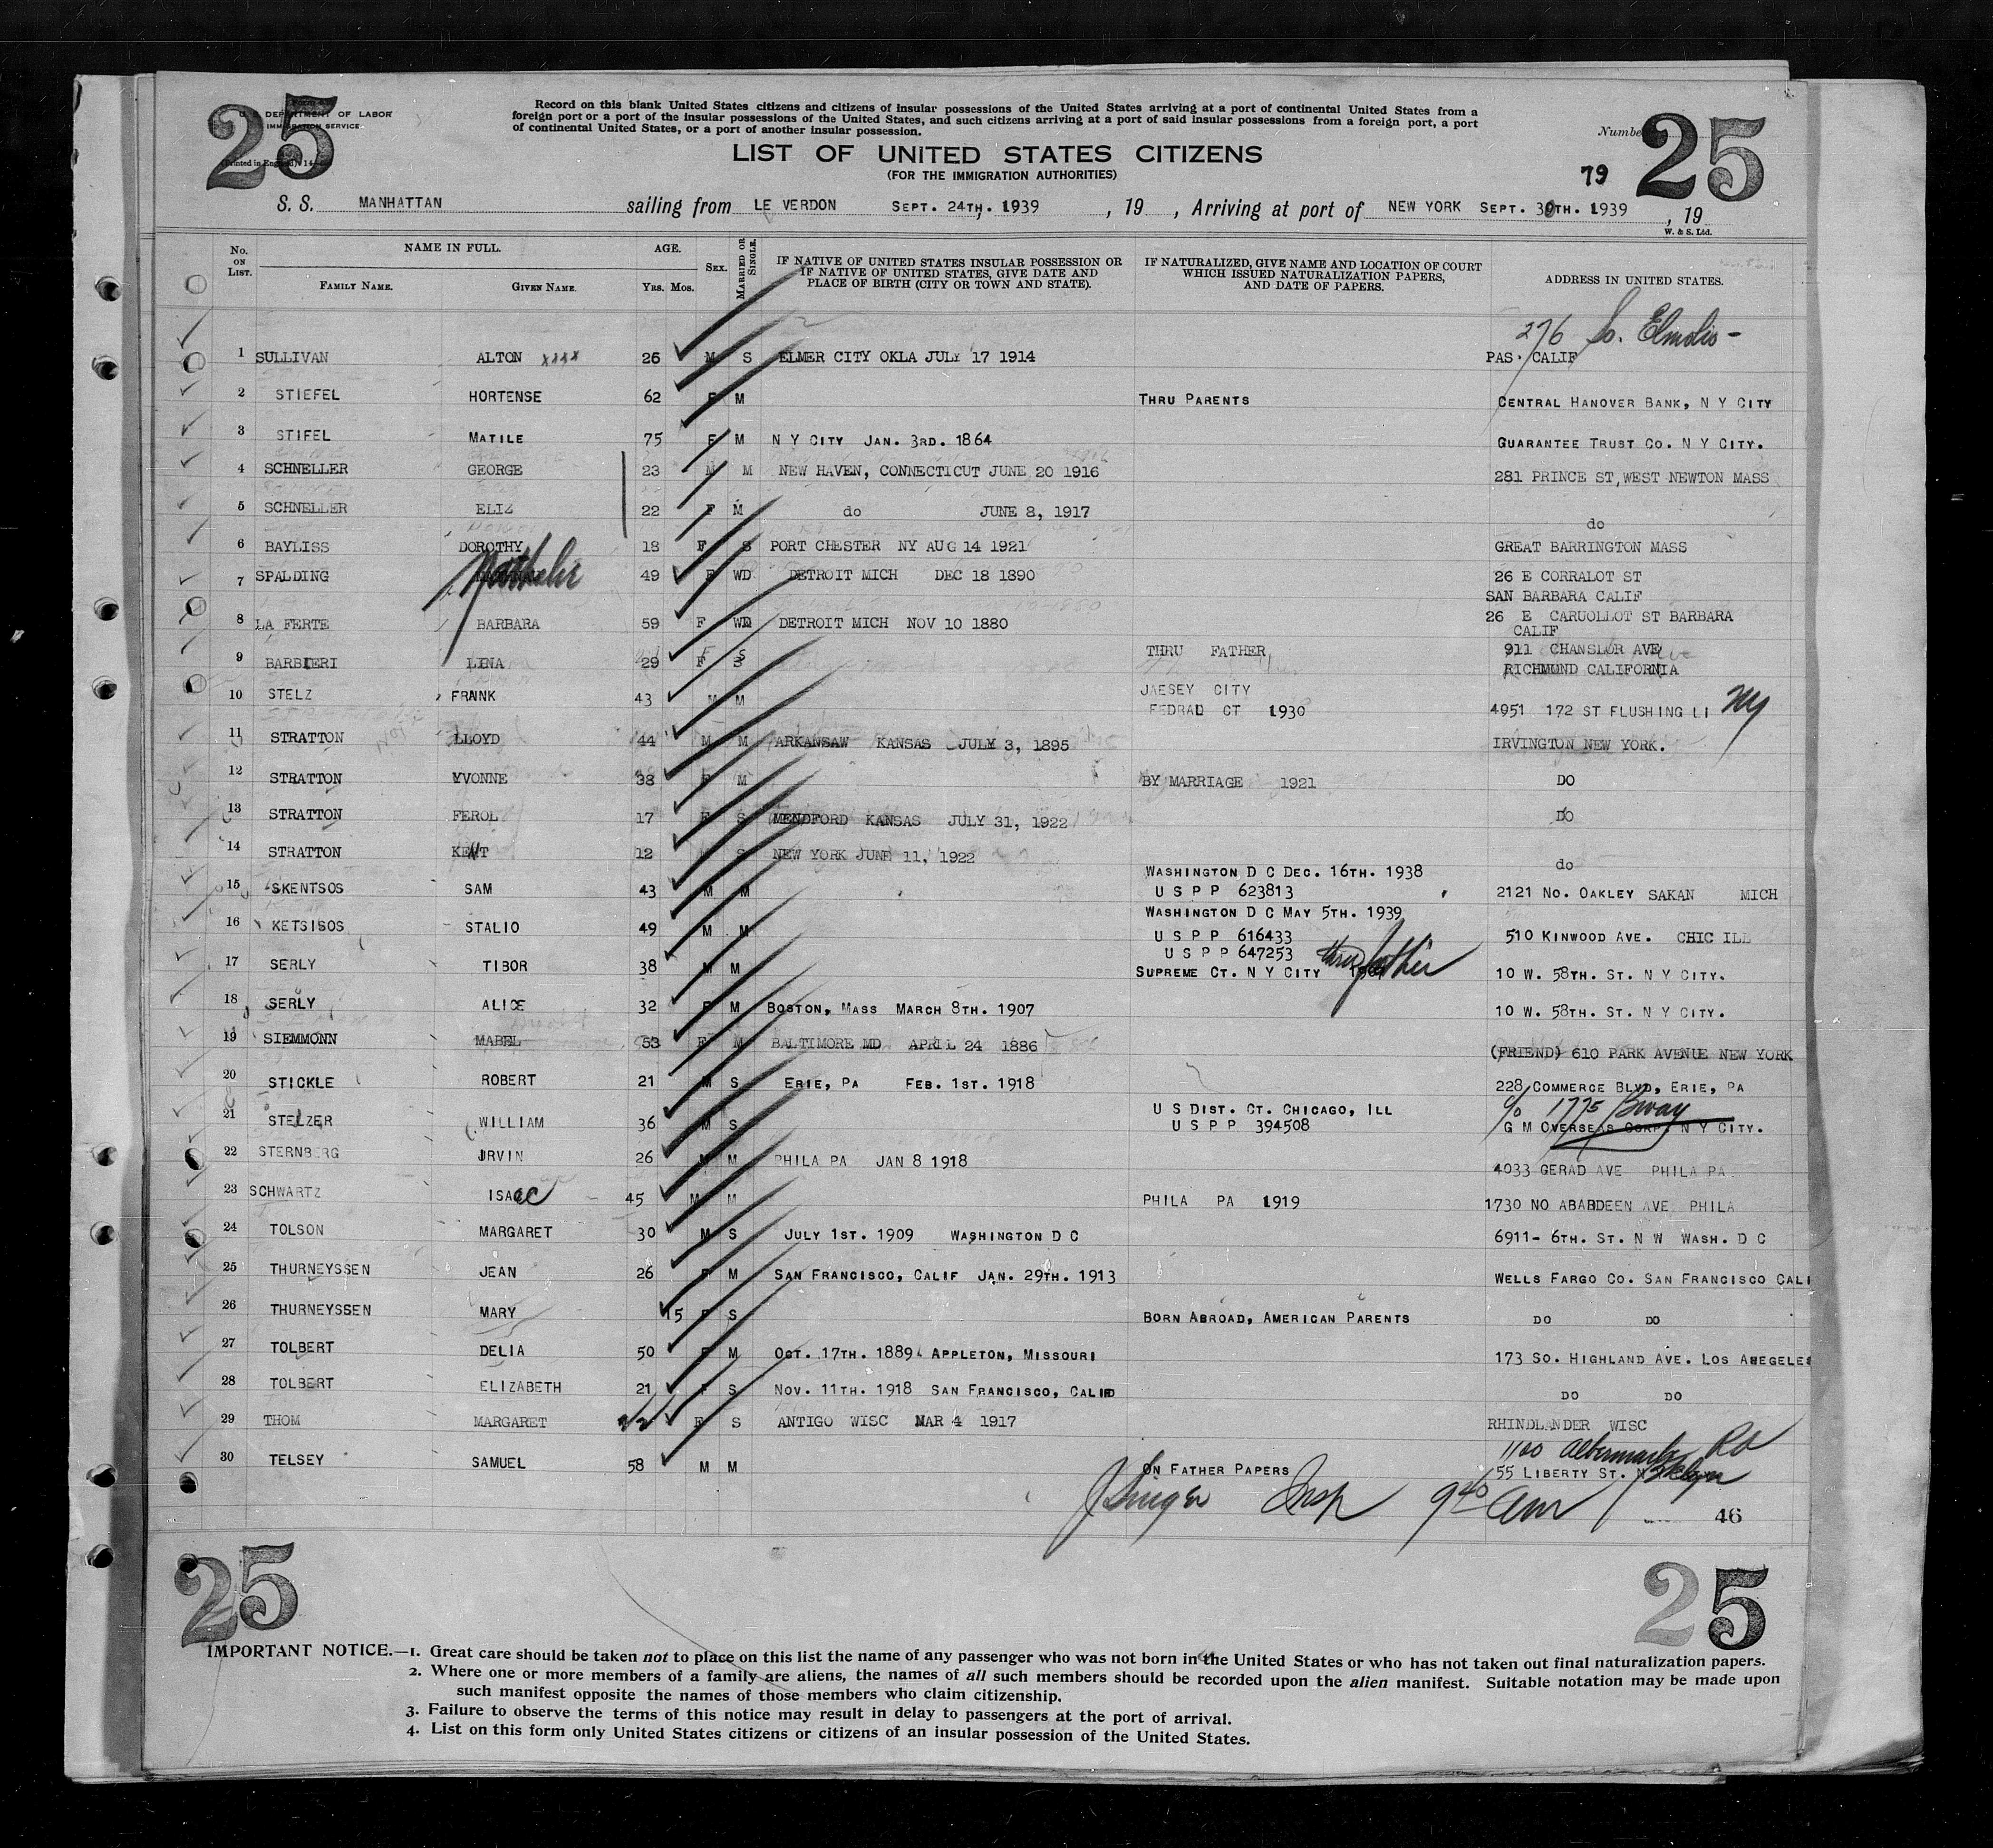 25
Form
U. S. DEPARTMENT OF LABOR
IMMIGRATION SERVICE
(Printed in England)
Record on this blank United States citizens and citizens of insular possessions of the United States arriving at a port of continental United States from a
foreign port or a port of the insular possessions of the United States, and such citizens arriving at a port of said insular possessions from a foreign port, a port
of continental United States, or a port of another insular possession.
Number
25
LIST OF UNITED STATES CITIZENS
(FOR THE IMMIGRATION AUTHORITIES)
79
S. S. MANHATTAN sailing from LE VERDON SEPT. 24TH. 1939 , 19 , Arriving at port of NEW YORK SEPT. 30TH. 1939 , 19
W. & S. Ltd.
No. ON LIST. NAME IN FULL. FAMILY NAME. GIVEN NAME. AGE. YRS. MOS. SEX. MARRIED OR SINGLE. IF NATIVE OF UNITED STATES INSULAR POSSESSION OR IF NATIVE OF UNITED STATES, GIVE DATE AND PLACE OF BIRTH (CITY OR TOWN AND STATE). IF NATURALIZED, GIVE NAME AND LOCATION OF COURT WHICH ISSUED NATURALIZATION PAPERS, AND DATE OF PAPERS. ADDRESS IN UNITED STATES.
276 So.
1 SULLIVAN ALTON xxxx 25 M S ELMER CITY OKLA JULY 17 1914 PAS. CALIF
2 STIEFEL HORTENSE 62 F M THRU PARENTS CENTRAL HANOVER BANK, N Y CITY
3 STIFEL MATILE 75 F M N Y CITY JAN. 3RD. 1864 GUARANTEE TRUST CO. N Y CITY.
4 SCHNELLER GEORGE 23 M M NEW HAVEN, CONNECTICUT JUNE 20 1916 281 PRINCE ST, WEST NEWTON MASS
5 SCHNELLER ELIZ 22 F M do JUNE 8, 1917 do
6 BAYLISS DOROTHY 18 F S PORT CHESTER NY AUG 14 1921 GREAT BARRINGTON MASS
7 SPALDING 49 F WD DETROIT MICH DEC 18 1890 26 E CORRALOT ST
SAN BARBARA CALIF
8 LA FERTE BARBARA 59 F WD DETROIT MICH NOV 10 1880 26 E CARUOLLOT ST BARBARA
CALIF
9 BARBIERI LINA 29 F S THRU FATHER 911 CHANSLOR AVE
RICHMUND CALIFORNIA
10 STELZ FRANK 43 M M JAESEY CITY
FEDRAL CT 1930 4951 172 ST FLUSHING LI NY
11 STRATTON LLOYD 44 M M ARKANSAW KANSAS JULY 3, 1895 IRVINGTON NEW YORK.
12 STRATTON YVONNE 38 F M BY MARRIAGE 1921 DO
13 STRATTON FEROL 17 F S MENDFORD KANSAS JULY 31, 1922 DO
14 STRATTON KENT 12 S NEW YORK JUNE 11, 1922 do
15 SKENTSOS SAM 43 M M WASHINGTON D C DEC. 16TH. 1938
U S P P 623813 2121 NO. OAKLEY SAKAN MICH
16 KETSISOS STALIO 49 M M WASHINGTON D C MAY 5TH. 1939
U S P P 616433 510 KINWOOD AVE. CHIC ILL
17 SERLY TIBOR 38 M M U S P P 647253
SUPREME CT. N Y CITY thru father 10 W. 58TH. ST. N Y CITY.
18 SERLY ALICE 32 F M BOSTON, MASS MARCH 8TH. 1907 10 W. 58TH. ST. N Y CITY.
19 SIEMMONN MABEL 53 F M BALTIMORE MD APRIL 24 1886 (FRIEND) 610 PARK AVENUE NEW YORK
20 STICKLE ROBERT 21 M S ERIE, PA FEB. 1ST. 1918 228 COMMERCE BLVD, ERIE, PA
c/o 1775 Bway
21 STELZER WILLIAM 36 M S U S DIST. CT. CHICAGO, ILL
U S P P 394508 G M OVERSEAS CORP. N Y CITY.
22 STERNBERG IRVIN 26 M M PHILA PA JAN 8 1918 4033 GERAD AVE PHILA PA
23 SCHWARTZ ISAAC 45 M M PHILA PA 1919 1730 NO ABARDEEN AVE PHILA
24 TOLSON MARGARET 30 M S JULY 1ST. 1909 WASHINGTON D C 6911- 6TH. ST. N W WASH. D C
25 THURNEYSSEN JEAN 26 F M SAN FRANCISCO, CALIF JAN. 29TH. 1913 WELLS FARGO CO. SAN FRANCISCO CALI
26 THURNEYSSEN MARY 15 F S BORN ABROAD, AMERICAN PARENTS DO DO
27 TOLBERT DELIA 50 F M OCT. 17TH. 1889 APPLETON, MISSOURI 173 SO. HIGHLAND AVE. LOS ANEGELES
28 TOLBERT ELIZABETH 21 F S NOV. 11TH. 1918 SAN FRANCISCO, CALIF DO DO
29 THOM MARGARET 22 F S ANTIGO WISC MAR 4 1917 RHINDLANDER WISC
1100 Albermarle Rd
30 TELSEY SAMUEL 58 M M ON FATHER PAPERS 55 LIBERTY ST. N Bklyn
J Singer Insp 9 40 am
46
25
25
IMPORTANT NOTICE.—1. Great care should be taken not to place on this list the name of any passenger who was not born in the United States or who has not taken out final naturalization papers.
2. Where one or more members of a family are aliens, the names of all such members should be recorded upon the alien manifest. Suitable notation may be made upon
such manifest opposite the names of those members who claim citizenship.
3. Failure to observe the terms of this notice may result in delay to passengers at the port of arrival.
4. List on this form only United States citizens or citizens of an insular possession of the United States.